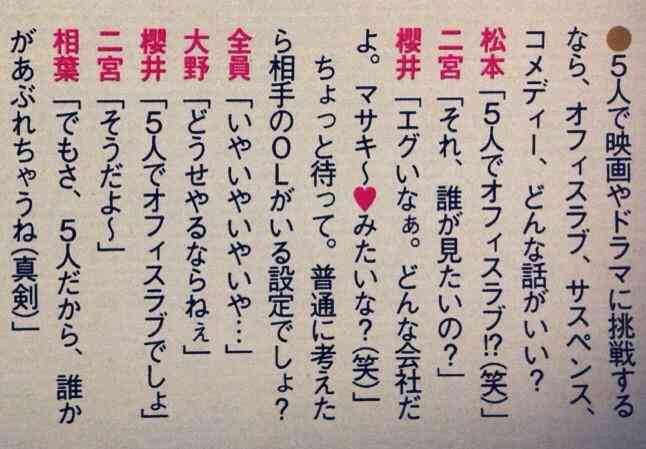 ●5人で映画やドラマに挑戦する
なら、オフィスラブ、サスペンス、
コメディー、どんな話がいい？
松本「5人でオフィスラブ!?(笑)」
二宮「それ、誰が見たいの？」
櫻井「エグいなぁ。どんな会社だ
よ。マサキ〜♥みたいな？(笑)」
ちょっと待って。普通に考えた
ら相手のOLがいる設定でしょ？
全員「いやいやいやいや…」
大野「どうせやるならねぇ」
櫻井「5人でオフィスラブでしょ」
二宮「そうだよ〜」
相葉「でもさ、5人だから、誰か
があぶれちゃうね(真剣)」